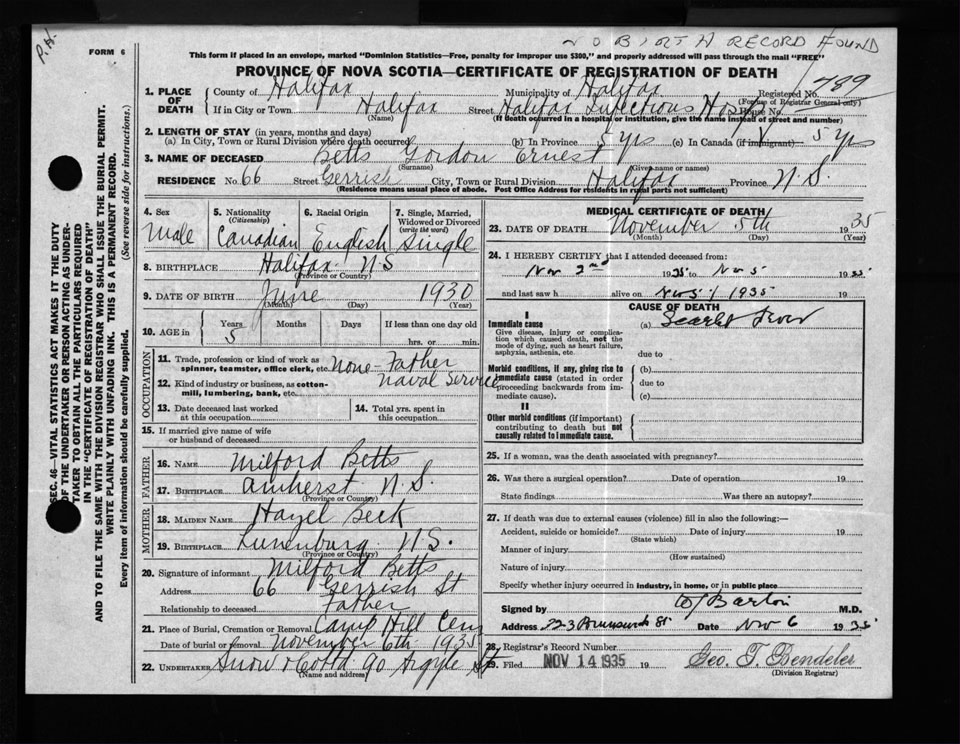 P.H.
NO BIRTH RECORD FOUND
FORM 6
This form if placed in an envelope, marked "Dominion Statistics—Free, penalty for improper use $300," and properly addressed will pass through the mail "FREE"
PROVINCE OF NOVA SCOTIA—CERTIFICATE OF REGISTRATION OF DEATH
SEC. 46—VITAL STATISTICS ACT MAKES IT THE DUTY
OF THE UNDERTAKER OR PERSON ACTING AS UNDER-
TAKER TO OBTAIN ALL THE PARTICULARS REQUIRED
IN THE "CERTIFICATE OF REGISTRATION OF DEATH"
AND TO FILE THE SAME WITH THE DIVISION REGISTRAR WHO SHALL ISSUE THE BURIAL PERMIT.
WRITE PLAINLY WITH UNFADING INK. THIS IS A PERMANENT RECORD.
Every item of information should be carefully supplied. (See reverse side for instructions.)
1. PLACE OF DEATH County of Halifax Municipality of Halifax Registered No. 789
(For use of Registrar General only)
If in City or Town Halifax Street Halifax Infectious Hosp House No.
(Name) (If death occurred in a hospital or institution, give the name instead of street and number)
2. LENGTH OF STAY (in years, months and days)
(a) In City, Town or Rural Division where death occurred (b) In Province 5 yrs (c) In Canada (if immigrant) 5 yrs
3. NAME OF DECEASED Betts Gordon Ernest
(Surname) (Given name or names)
RESIDENCE No. 66 Street Gerrish City, Town or Rural Division Halifax Province N.S.
(Residence means usual place of abode. Post Office Address for residents in rural parts not sufficient)
4. Sex 5. Nationality (Citizenship) 6. Racial Origin 7. Single, Married, Widowed or Divorced (write the word)
Male Canadian English Single
8. BIRTHPLACE Halifax NS
(Province or Country)
9. DATE OF BIRTH June 1930
(Month) (Day) (Year)
10. AGE in Years Months Days If less than one day old
5 hrs. or min.
OCCUPATION
11. Trade, profession or kind of work as spinner, teamster, office clerk, etc. None - Father
12. Kind of industry or business, as cotton-mill, lumbering, bank, etc. Naval Service
13. Date deceased last worked at this occupation 14. Total yrs. spent in this occupation
15. If married give name of wife or husband of deceased
FATHER
16. NAME Milford Betts
17. BIRTHPLACE Amherst N.S.
(Province or Country)
MOTHER
18. MAIDEN NAME Hazel Beck
19. BIRTHPLACE Lunenburg N.S.
(Province or Country)
20. Signature of informant Milford Betts
Address 66 Gerrish St
Relationship to deceased Father
21. Place of Burial, Cremation or Removal Camp Hill Cem
Date of burial or removal November 6th 1935
22. UNDERTAKER Snow & Co Ltd 90 Argyle St
(Name and address)
MEDICAL CERTIFICATE OF DEATH
23. DATE OF DEATH November 5th 1935
(Month) (Day) (Year)
24. I HEREBY CERTIFY that I attended deceased from:
Nov 2nd 1935 to Nov 5 1935
and last saw h alive on Nov 5 / 1935 19
CAUSE OF DEATH
I
Immediate cause (a) Scarlet Fever
Give disease, injury or complication which caused death, not the mode of dying, such as heart failure, asphyxia, asthenia, etc. due to
Morbid conditions, if any, giving rise to immediate cause (stated in order proceeding backwards from immediate cause). (b)
due to
(c)
II
Other morbid conditions (if important) contributing to death but not causally related to Immediate cause.
25. If a woman, was the death associated with pregnancy?
26. Was there a surgical operation? Date of operation 19
State findings Was there an autopsy?
27. If death was due to external causes (violence) fill in also the following:—
Accident, suicide or homicide? Date of injury 19
(State which)
Manner of injury
(How sustained)
Nature of injury
Specify whether injury occurred in industry, in home, or in public place
Signed by Barton M.D.
Address 223 Brunswick St. Date Nov 6 1935
28. Registrar's Record Number
29. Filed NOV 14 1935 19 Geo. T. Bendeler
(Division Registrar)